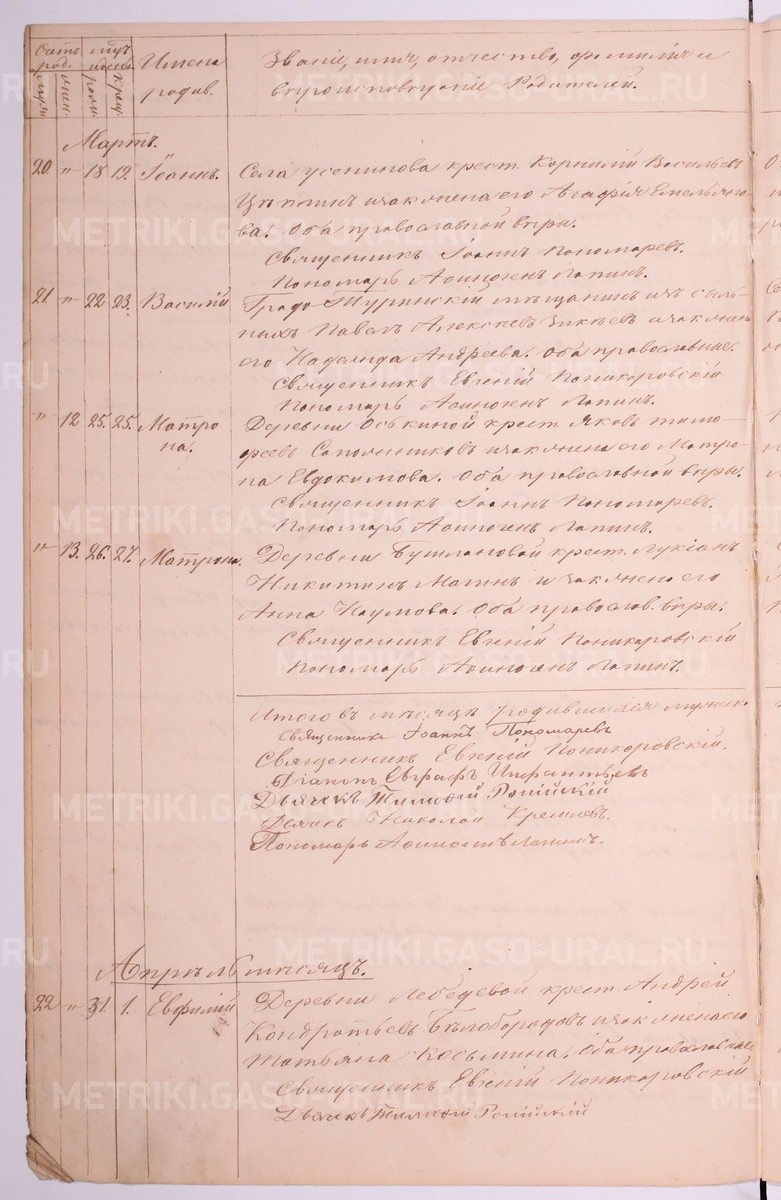 Счетъ род. Мѣц. и день Имена родив. Званіе, имя, отчество, фамилія и
муж. жен. рожд. крещ. вѣроисповѣданіе Родителей.
Мартъ.
20 " 18 19. Іоаннъ. Села Усенинова крест. Корнилій Васильевъ
и зак. жена его Агафія Емельяно-
ва. Оба православной вѣры.
Священникъ Іоаннъ Пономаревъ.
Пономарь Аѳиногенъ Лапинъ.
21 " 22 23. Василій Градо-Туринскій мѣщанинъ изъ ссыль-
ныхъ Павелъ Алексѣевъ и зак. жена
его Надежда Андреева. Оба православные.
Священникъ Евгеній Поникаровскій
Пономарь Аѳиногенъ Лапинъ.
" 12 25. 25. Матро Деревни Оськиной крест. Яковъ Тимо-
на. феевъ Сапожниковъ и зак. жена его Матро-
на Евдокимова. Оба православной вѣры.
Священникъ Іоаннъ Пономаревъ.
Пономарь Аѳиногенъ Лапинъ.
" 13. 26. 27. Матрона. Деревни крест. Лукіанъ
Никитинъ и зак. жена его
Анна Наумова. Оба православ. вѣры.
Священникъ Евгеній Поникаровскій
Пономарь Аѳиногенъ Лапинъ.
Итого въ мѣсяцѣ родившихся мужеск.
Священникъ Іоаннъ Пономаревъ
Священникъ Евгеній Поникаровскій.
Діаконъ Евграфъ Инфантьевъ
Дьячекъ Тимофій
Дьячекъ Николай
Пономарь Аѳиногенъ Лапинъ.
Апрѣль мѣсяцъ.
22 " 31. 1. Евфимій Деревни Лебедевой крест. Андрей
Кондратьевъ Бѣлобородовъ и зак. жена его
Татьяна Косьмина. Оба православные
Священникъ Евгеній Поникаровскій
Дьячекъ Тимофій
METRIKI.GASO-URAL.RU